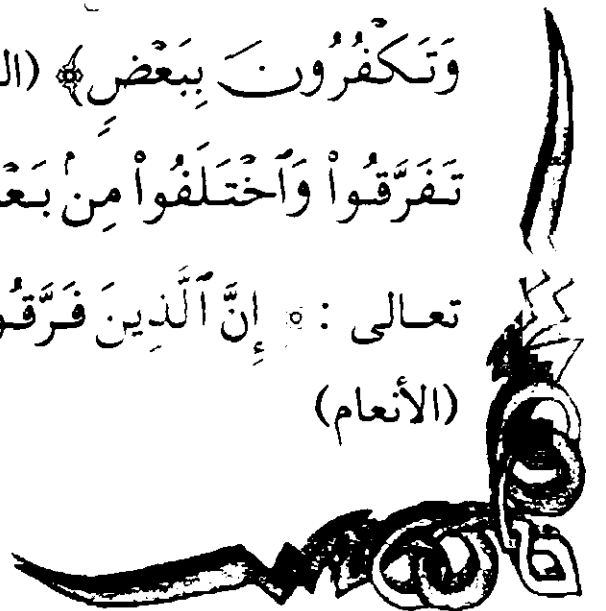 وَتَكْفُرُونَ بِبَعْضٍ﴾ (
تَفَرَّقُوا۟ وَٱخْتَلَفُوا۟ مِنۢ
تعالى : إِنَّ ٱلَّذِينَ
(الأنعام)